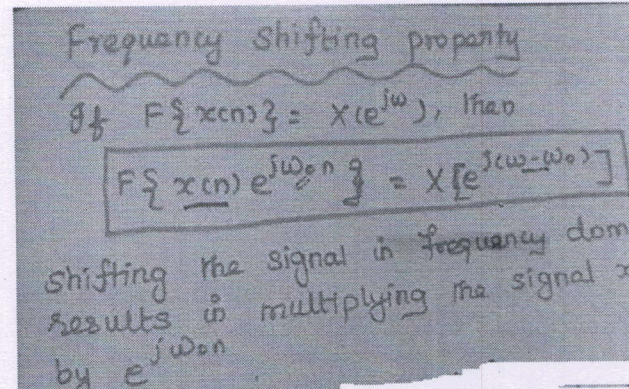 Frequency Shifting property
If F{x(n)} = X(e^{jω}), then
F{x(n) e^{jω₀n}} = X[e^{j(ω-ω₀)}]
Shifting the signal in frequency dom
results in multiplying the signal x
by e^{jω₀n}